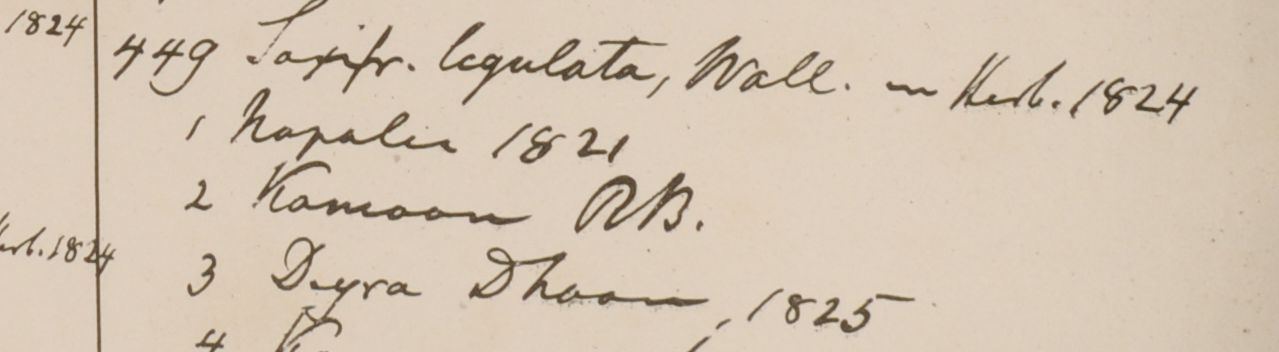 1824
449 Saxifr. legulata, Wall. in Herb. 1824
1 Napalia 1821
2 Kamaon RB.
Herb. 1824
3 Deyra Dhoon, 1825
4